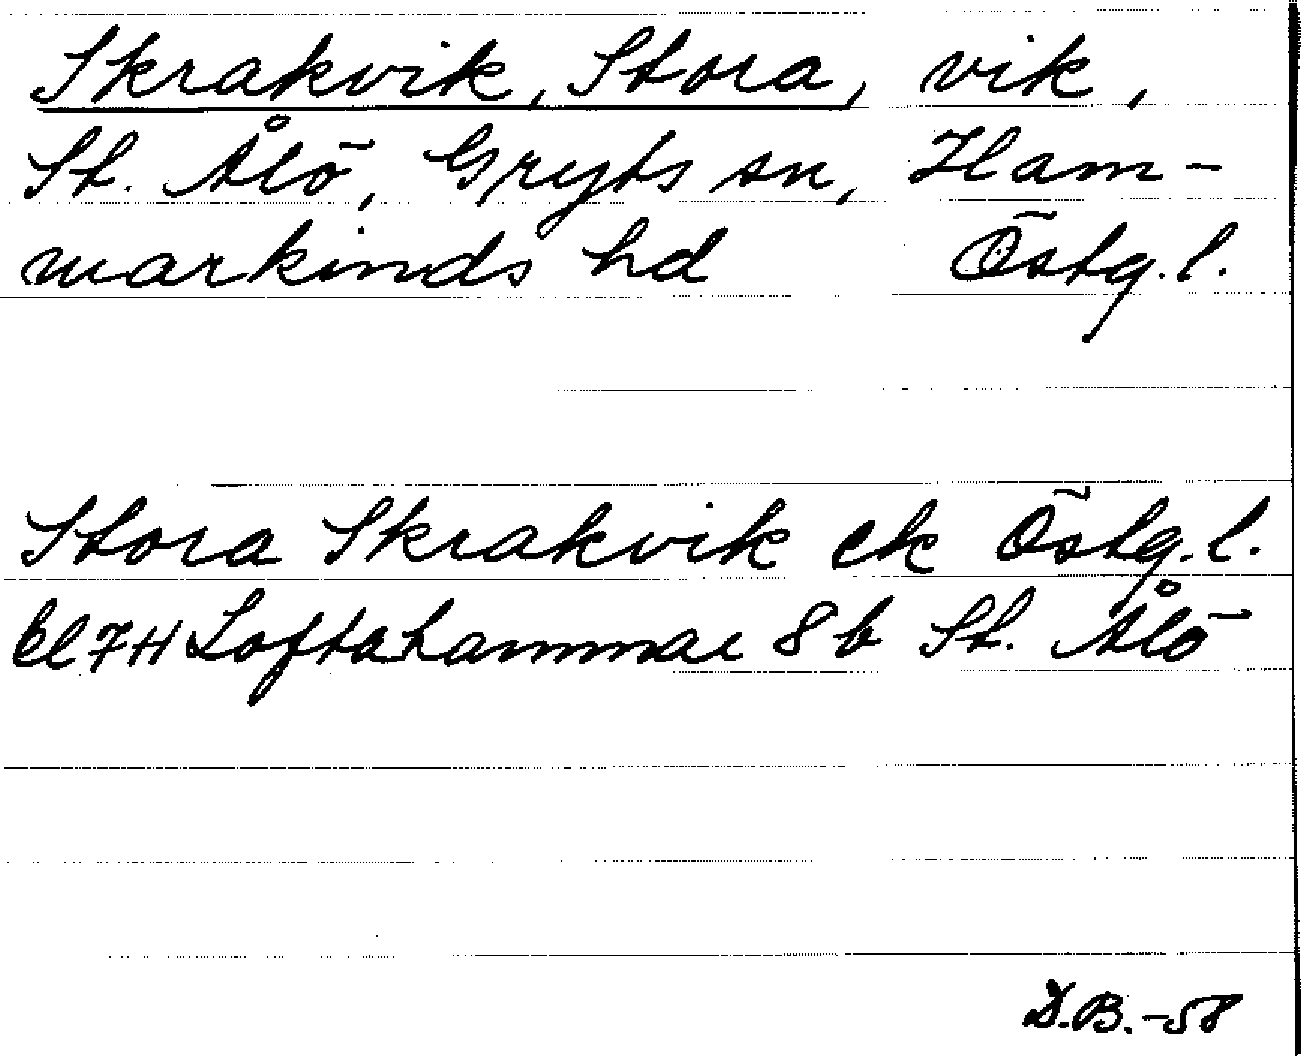 Skrakvik, Stora, vik,
St. Ålö, Gryts sn, Ham-
markinds hd Östg. l.
Stora Skrakvik ek Östg. l.
bl 7H Loftahammar 8b St. Ålö
D.B.-58